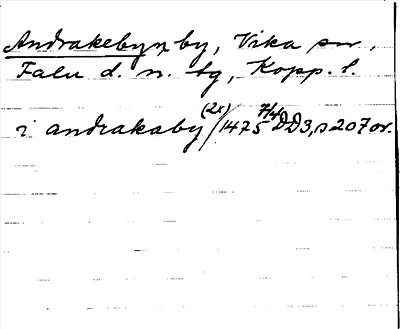 Andrakebyn by, Vika sn.,
Falu d. n. tg, Kopp. l.
i andrakaby (2x) / 1475 7/4 DD3, s 207 or.